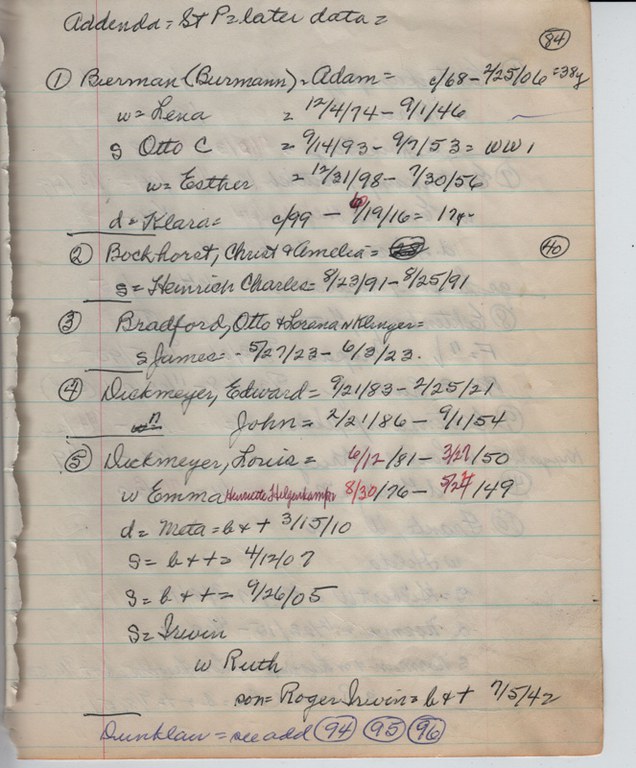 Addenda = St P = later data =
84
① Bierman (Burmann) = Adam = c/68 - 2/25/06 = 38y
w = Lena = 12/4/74 - 9/1/46
S Otto C = 9/14/93 - 9/7/53 = WW 1
w = Esther = 12/31/98 - 7/30/56
d = Klara = c/99 - 6/19/16 = 17y -
② Bockhorst, Christ & Amelia = 40
S = Heinrich Charles = 8/23/91 - 8/25/91
③ Bradford, Otto & Lorena N Klinger =
S James = - 5/27/23 - 6/3/23.
④ Dickmeyer, Edward = 9/21/83 - 2/25/21
n John = 2/21/86 - 9/1/54
⑤ Dickmeyer, Louis = 6/12/81 - 3/27/50
w Emma Henriette Helgenkamp 8/30/76 - 5/27/49
d = Meta = b & + 3/15/10
S = b & + = 4/12/07
S = b & + = 9/26/05
S = Irwin
w Ruth
son = Roger Irwin = b & + 7/5/42
Dunklau = see add 94 95 96